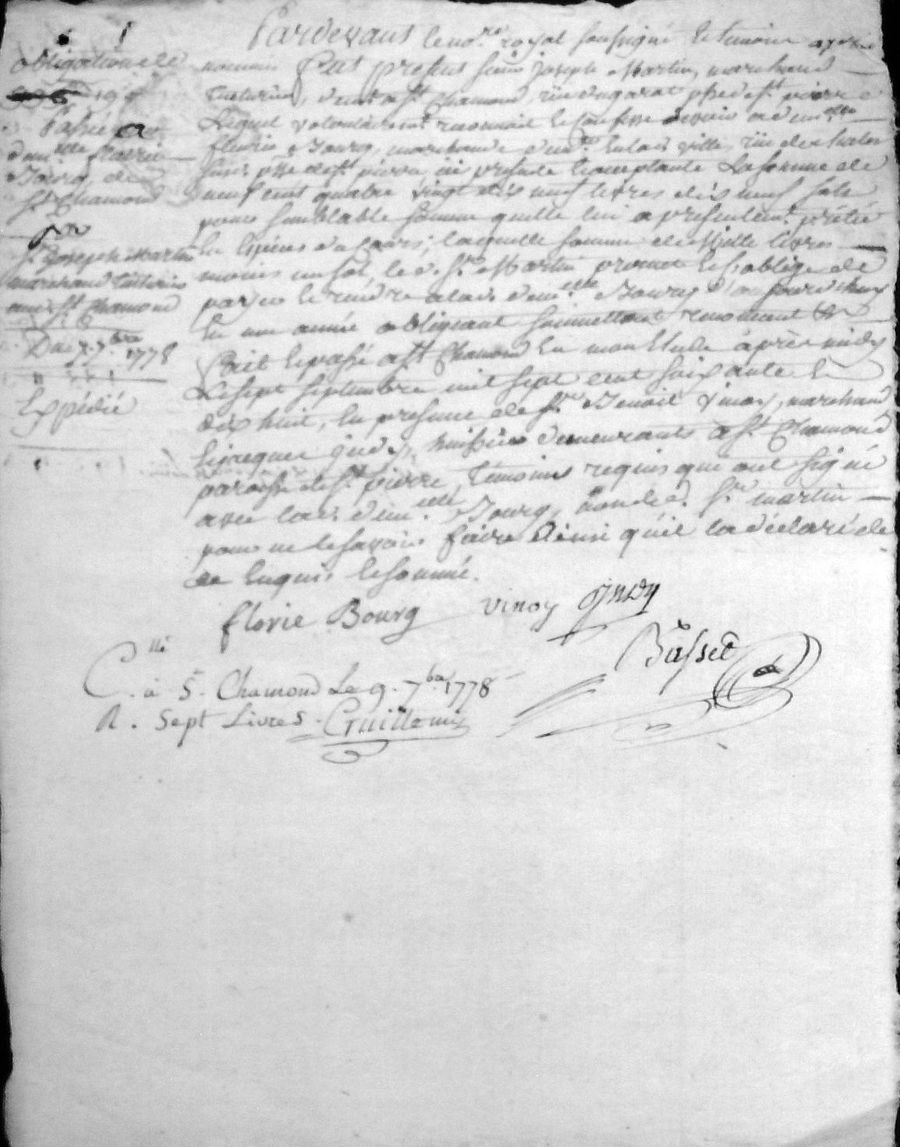 obligation de
Passée a
dem.elle florie
Bourg de
S.t Chamond
Par
S.r Joseph Martin
marchand teinturier
aud. S.t Chamond
Du 7. 7.bre 1778
Expédié
Pardevant le no.re royal soussigné et temoins après
nommés fut présent sieur Joseph Martin, marchand
teinturier, dem.t a S.t Chamond, rüe p.sse de S.t pierre
Lequel volontairem.t reconnoit et confesse devoir a dem.elle
florie Bourg, marchande dem.te en lad. ville, rüe des
p.sse de S.t pierre, ici présente et acceptante La somme de
neuf cent quatre vingt dix neuf livres dix neuf sols
pour semblable somme qu'elle lui a présentem.t prêtée
en Espèces du cours; laquelle somme de Mille livres
moins un sol, led. S.r Martin promet et s'oblige de
payer et rendre a lad. dem.elle Bourg d'aujourd'huy
En une année obligeant soumettant renonçant &
Fait et passé a S.t Chamond En mon Etude après midy
Le sept septembre mil sept cent soixante et
dix huit, En présence de S.r Benoit Vinoy, marchand
huissier demeurants a S.t Chamond
paroisse de S.t pierre, Témoins requis qui ont signé
avec lad. dem.elle Bourg, non led. S.r martin
pour ne le savoir faire ainsi qu'il l'a déclaré de
ce Enquis et sommé.
florie Bourg vinoy
Basset
C.llé à S.t Chamond Le 9. 7.bre 1778
R. Sept Livres